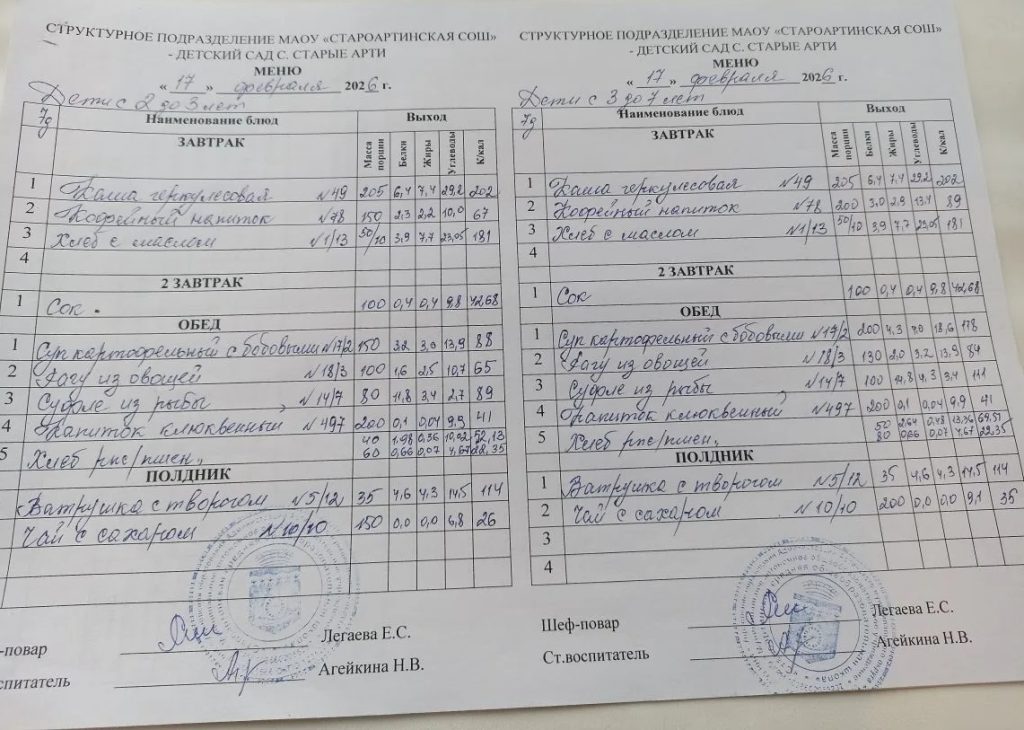 СТРУКТУРНОЕ ПОДРАЗДЕЛЕНИЕ МАОУ «СТАРОАРТИНСКАЯ СОШ»
- ДЕТСКИЙ САД С. СТАРЫЕ АРТИ
МЕНЮ
« 17 » февраля 2026 г.
Дети с 2 до 3 лет
7д Наименование блюд Выход
ЗАВТРАК Масса порции Белки Жиры Углеводы К/кал
1 Каша геркулесовая №49 205 6,4 7,4 29,2 202
2 Кофейный напиток №78 150 2,3 2,2 10,0 67
3 Хлеб с маслом №1/13 50/10 3,9 7,7 23,05 181
4
2 ЗАВТРАК
1 Сок. 100 0,4 0,4 9,8 42,68
ОБЕД
1 Суп картофельный с бобовыми №17/2 150 3,2 3,0 13,9 88
2 Рагу из овощей №18/3 100 1,6 2,5 10,7 65
3 Суфле из рыбы, №14/7 80 11,8 3,4 2,7 89
4 Напиток клюквенный №497 200 0,1 0,04 9,9 41
5 Хлеб рж/пшен. 40 1,98 0,36 10,02 52,13
60 0,66 0,07 4,67 22,35
ПОЛДНИК
Ватрушка с творогом №5/12 35 4,6 4,3 14,5 114
Чай с сахаром №10/10 150 0,0 0,0 6,8 26
-повар Легаева Е.С.
спитатель Агейкина Н.В.
СТРУКТУРНОЕ ПОДРАЗДЕЛЕНИЕ МАОУ «СТАРОАРТИНСКАЯ СОШ»
- ДЕТСКИЙ САД С. СТАРЫЕ АРТИ
МЕНЮ
« 17 » февраля 2026 г.
Дети с 3 до 7 лет
7д Наименование блюд Выход
ЗАВТРАК Масса порции Белки Жиры Углеводы К/кал
1 Каша геркулесовая №49 205 6,4 7,4 29,2 202
2 Кофейный напиток №78 200 3,0 2,9 13,4 89
3 Хлеб с маслом №1/13 50/10 3,9 7,7 23,05 181
4
2 ЗАВТРАК
1 Сок 100 0,4 0,4 9,8 42,68
ОБЕД
1 Суп картофельный с бобовыми №17/2 200 4,3 18,6 118
2 Рагу из овощей №18/3 130 2,0 3,2 13,9 84
3 Суфле из рыбы, №14/7 100 14,8 4,3 3,4 111
4 Напиток клюквенный №497 200 0,1 0,04 9,9 41
5 Хлеб рж/пшен. 50 2,64 0,48 13,36 69,51
80 0,66 0,07 4,67 22,35
ПОЛДНИК
1 Ватрушка с творогом №5/12 35 4,6 4,3 14,5 114
2 Чай с сахаром №10/10 200 0,0 0,0 9,1 35
3
4
Шеф-повар Легаева Е.С.
Ст.воспитатель Агейкина Н.В.